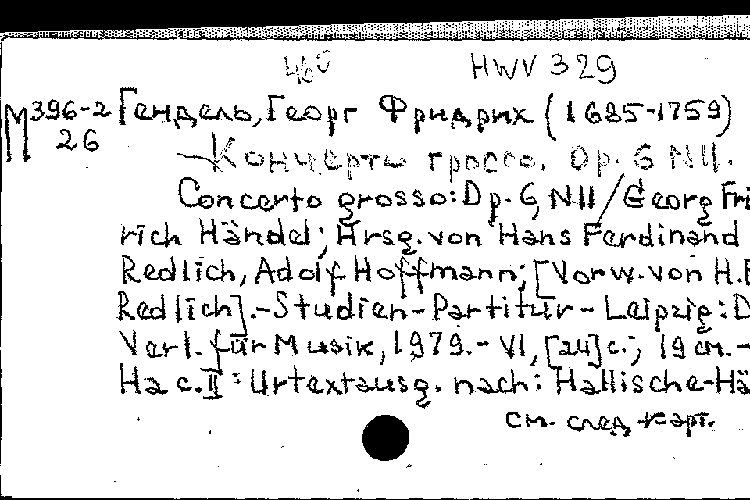 460 HWV 329
М 396-2 Гендель, Георг Фридрих (1685-1759)
26
Концерты гроссо. Op. 6 N 11.
Concerto grosso: Op. 6, N 11 / Georg Fri
rich Händel; Hrsg. von Hans Ferdinand
Redlich, Adolf Hoffmann; [Vorw. von H.F
Redlich]. - Studien-Partitur - Leipzig: D
Verl. für Musik, 1979. - VI, [24] с.; 19 см. -
На с. II: Urtextausg. nach: Hallische-Hä
см. след. карт.